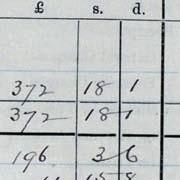 £ s. d.
372 18 1
372 18 1
196 3 6